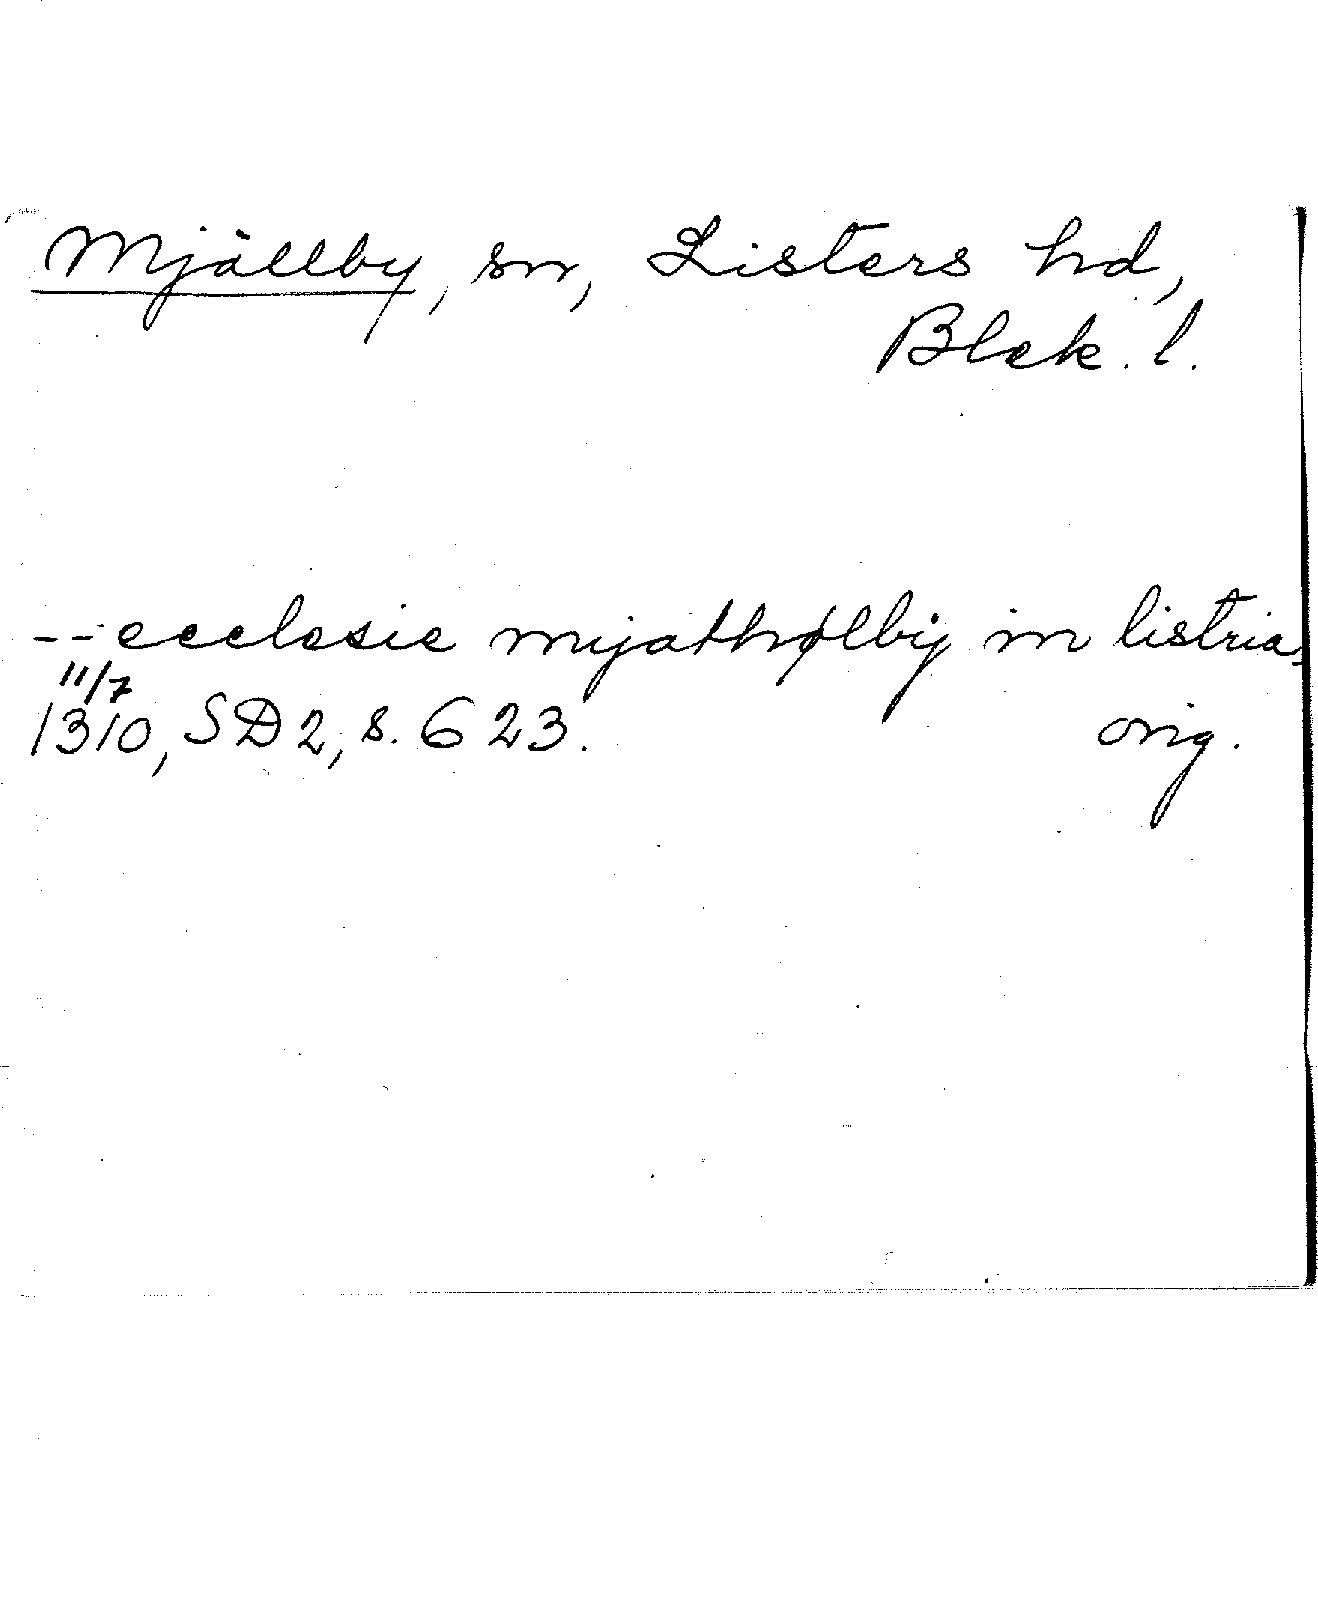 Mjällby, sn, Listers hd,
Blek. l.
--ecclesie myathølbÿ in listria,
11/7
1310, SD2, s. 623. orig.